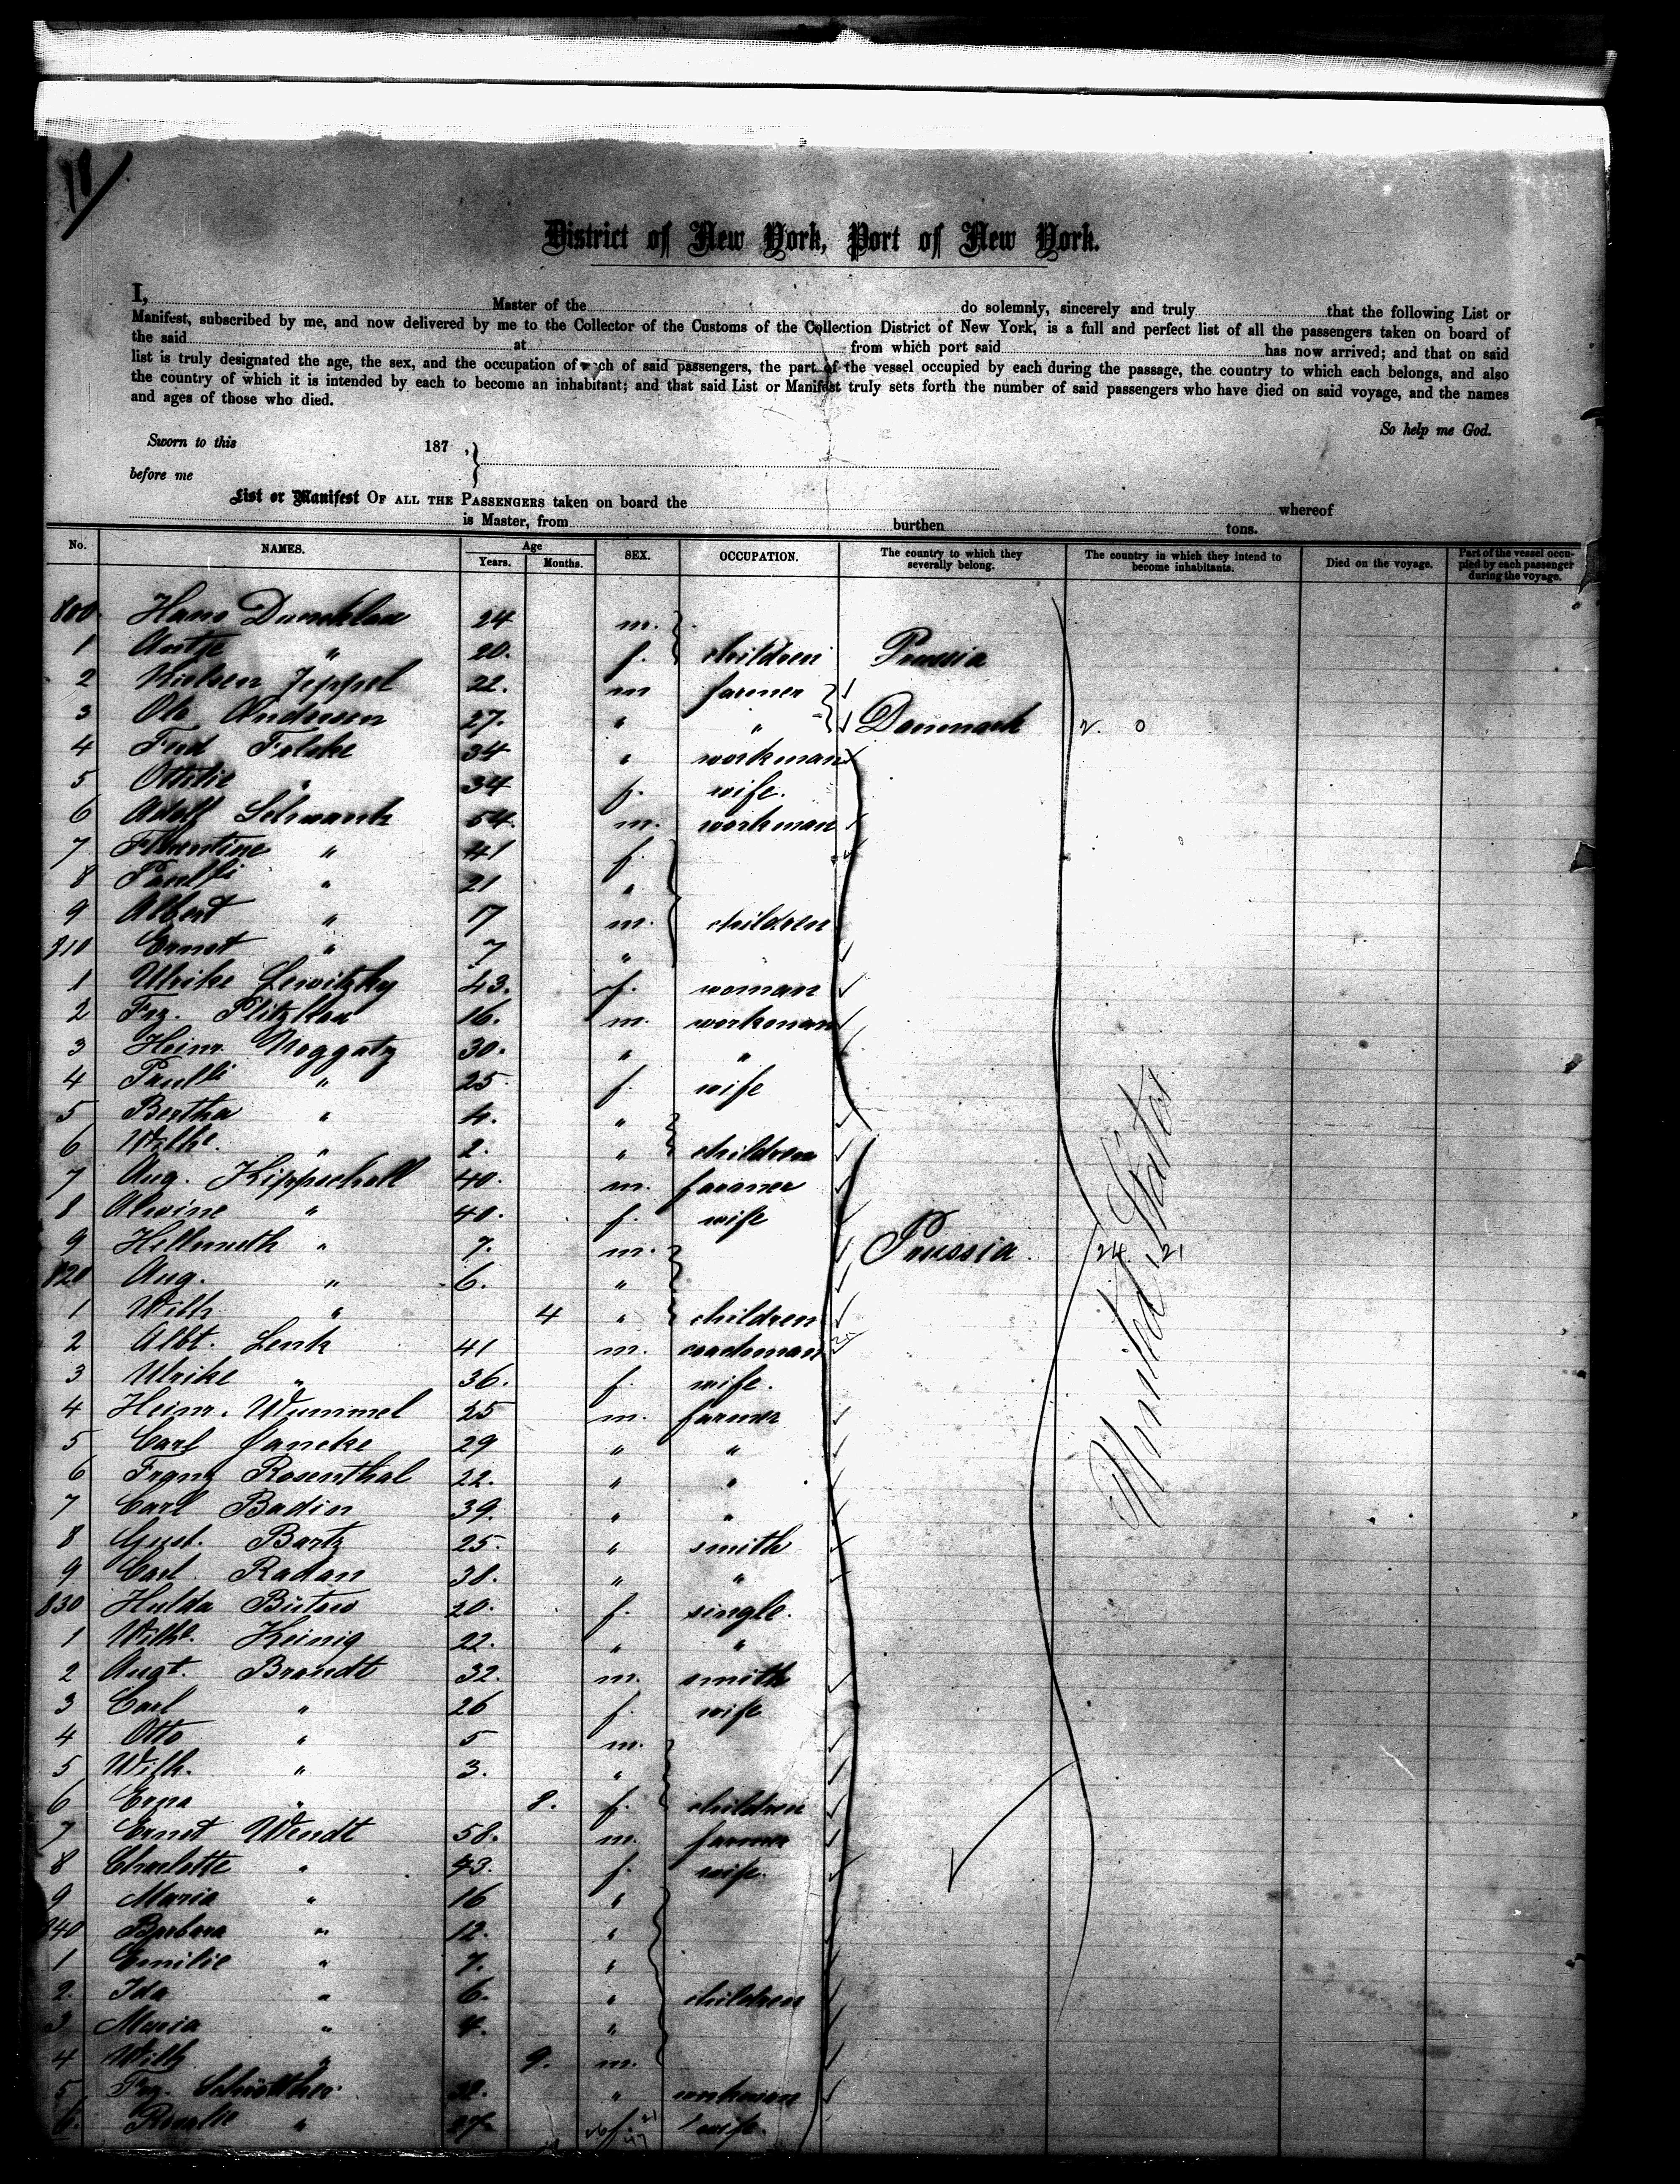 11/
District of New York, Port of New York.
I, Master of the do solemnly, sincerely and truly that the following List or
Manifest, subscribed by me, and now delivered by me to the Collector of the Customs of the Collection District of New York, is a full and perfect list of all the passengers taken on board of
the said at from which port said has now arrived; and that on said
list is truly designated the age, the sex, and the occupation of each of said passengers, the part of the vessel occupied by each during the passage, the country to which each belongs, and also
the country of which it is intended by each to become an inhabitant; and that said List or Manifest truly sets forth the number of said passengers who have died on said voyage, and the names
and ages of those who died.
So help me God.
Sworn to this 187 ,
before me
List or Manifest OF ALL THE PASSENGERS taken on board the whereof
is Master, from burthen tons.
No. NAMES. Age Years. Months. SEX. OCCUPATION. The country to which they severally belong. The country in which they intend to become inhabitants. Died on the voyage. Part of the vessel occupied by each passenger during the voyage.
800 Hans 24 m.
1 Antje " 20. f. children Prussia
2 Nielsen Jeppel 22. m farmer
3 Ole Andersen 27. " " Denmark 2. 0
4 Ferd Falske 34 " workman
5 Ottilie " 34 f. wife.
6 Adolf Schwartz 54. m. workman
7 Florentine " 41 f.
8 " 21 "
9 Albert " 17 m. children
810 Ernst " 7 "
1 Ulrike Lewitzky 43. f. woman
2 Frz. 16. m. workman
3 Heinr. Noggatz 30. " "
4 " 25. f. wife
5 Bertha " 4. "
6 Wilhe. " 2. " children
7 Aug. Kippschull 40. m. farmer
8 Alwine " 40. f. wife
9 Hellmuth " 7. m. Prussia 24 21
820 Aug. " 6. "
1 Wilh " 4 " children United States
2 Albt. Lenk 41 m. coachman
3 Ulrike " 36. f. wife.
4 Heinr. Wummel 25 m. farmer
5 Carl Jancke 29 " "
6 Franz Rosenthal 22. " "
7 Carl Badin 39. " "
8 Gust. Bartz 25. " smith
9 Carl Radan 38. " "
830 Hulda Bütow 20. f. single.
1 Wilhe. Keinig 22. " "
2 Augt. Brandt 32. m. smith
3 Carl " 26 f. wife
4 Otto " 5 m.
5 Wilh. " 3. "
6 Erna " 8. f. children
7 Ernst Wendt 58. m. farmer
8 Charlotte " 43. f. wife.
9 Maria " 16 "
840 Barbara " 12. "
1 Emilie " 7. "
2. Ida " 6. " children
3 Maria " 4. "
4 Wilh " 9. m.
5 Frz. " workman
6. Rosalie " f. wife.